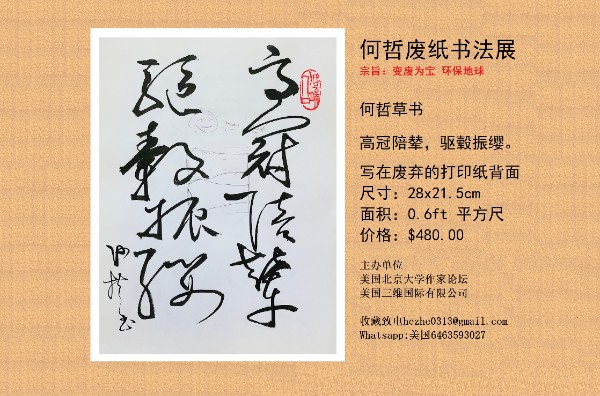 高冠陪辇
驱毂振缨
何哲书
何哲废纸书法展
宗旨：变废为宝 环保地球
何哲草书
高冠陪辇，驱毂振缨。
写在废弃的打印纸背面
尺寸：28x21.5cm
面积：0.6ft 平方尺
价格：$480.00
主办单位
美国北京大学作家论坛
美国三维国际有限公司
收藏致电hezhe0313@gmail.com
Whatsapp:美国6463593027